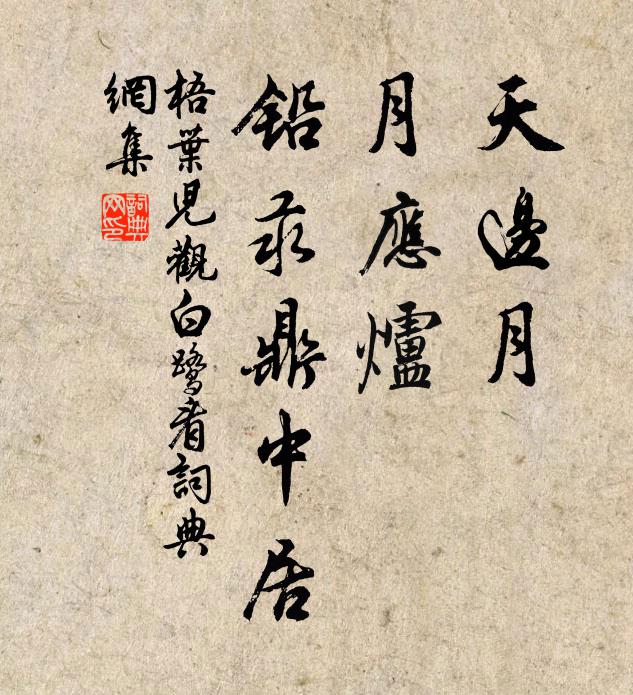 天邊月
月應爐
鉛汞鼎中居
梧葉児觀白鹭者詞典
網集
詞典
网印